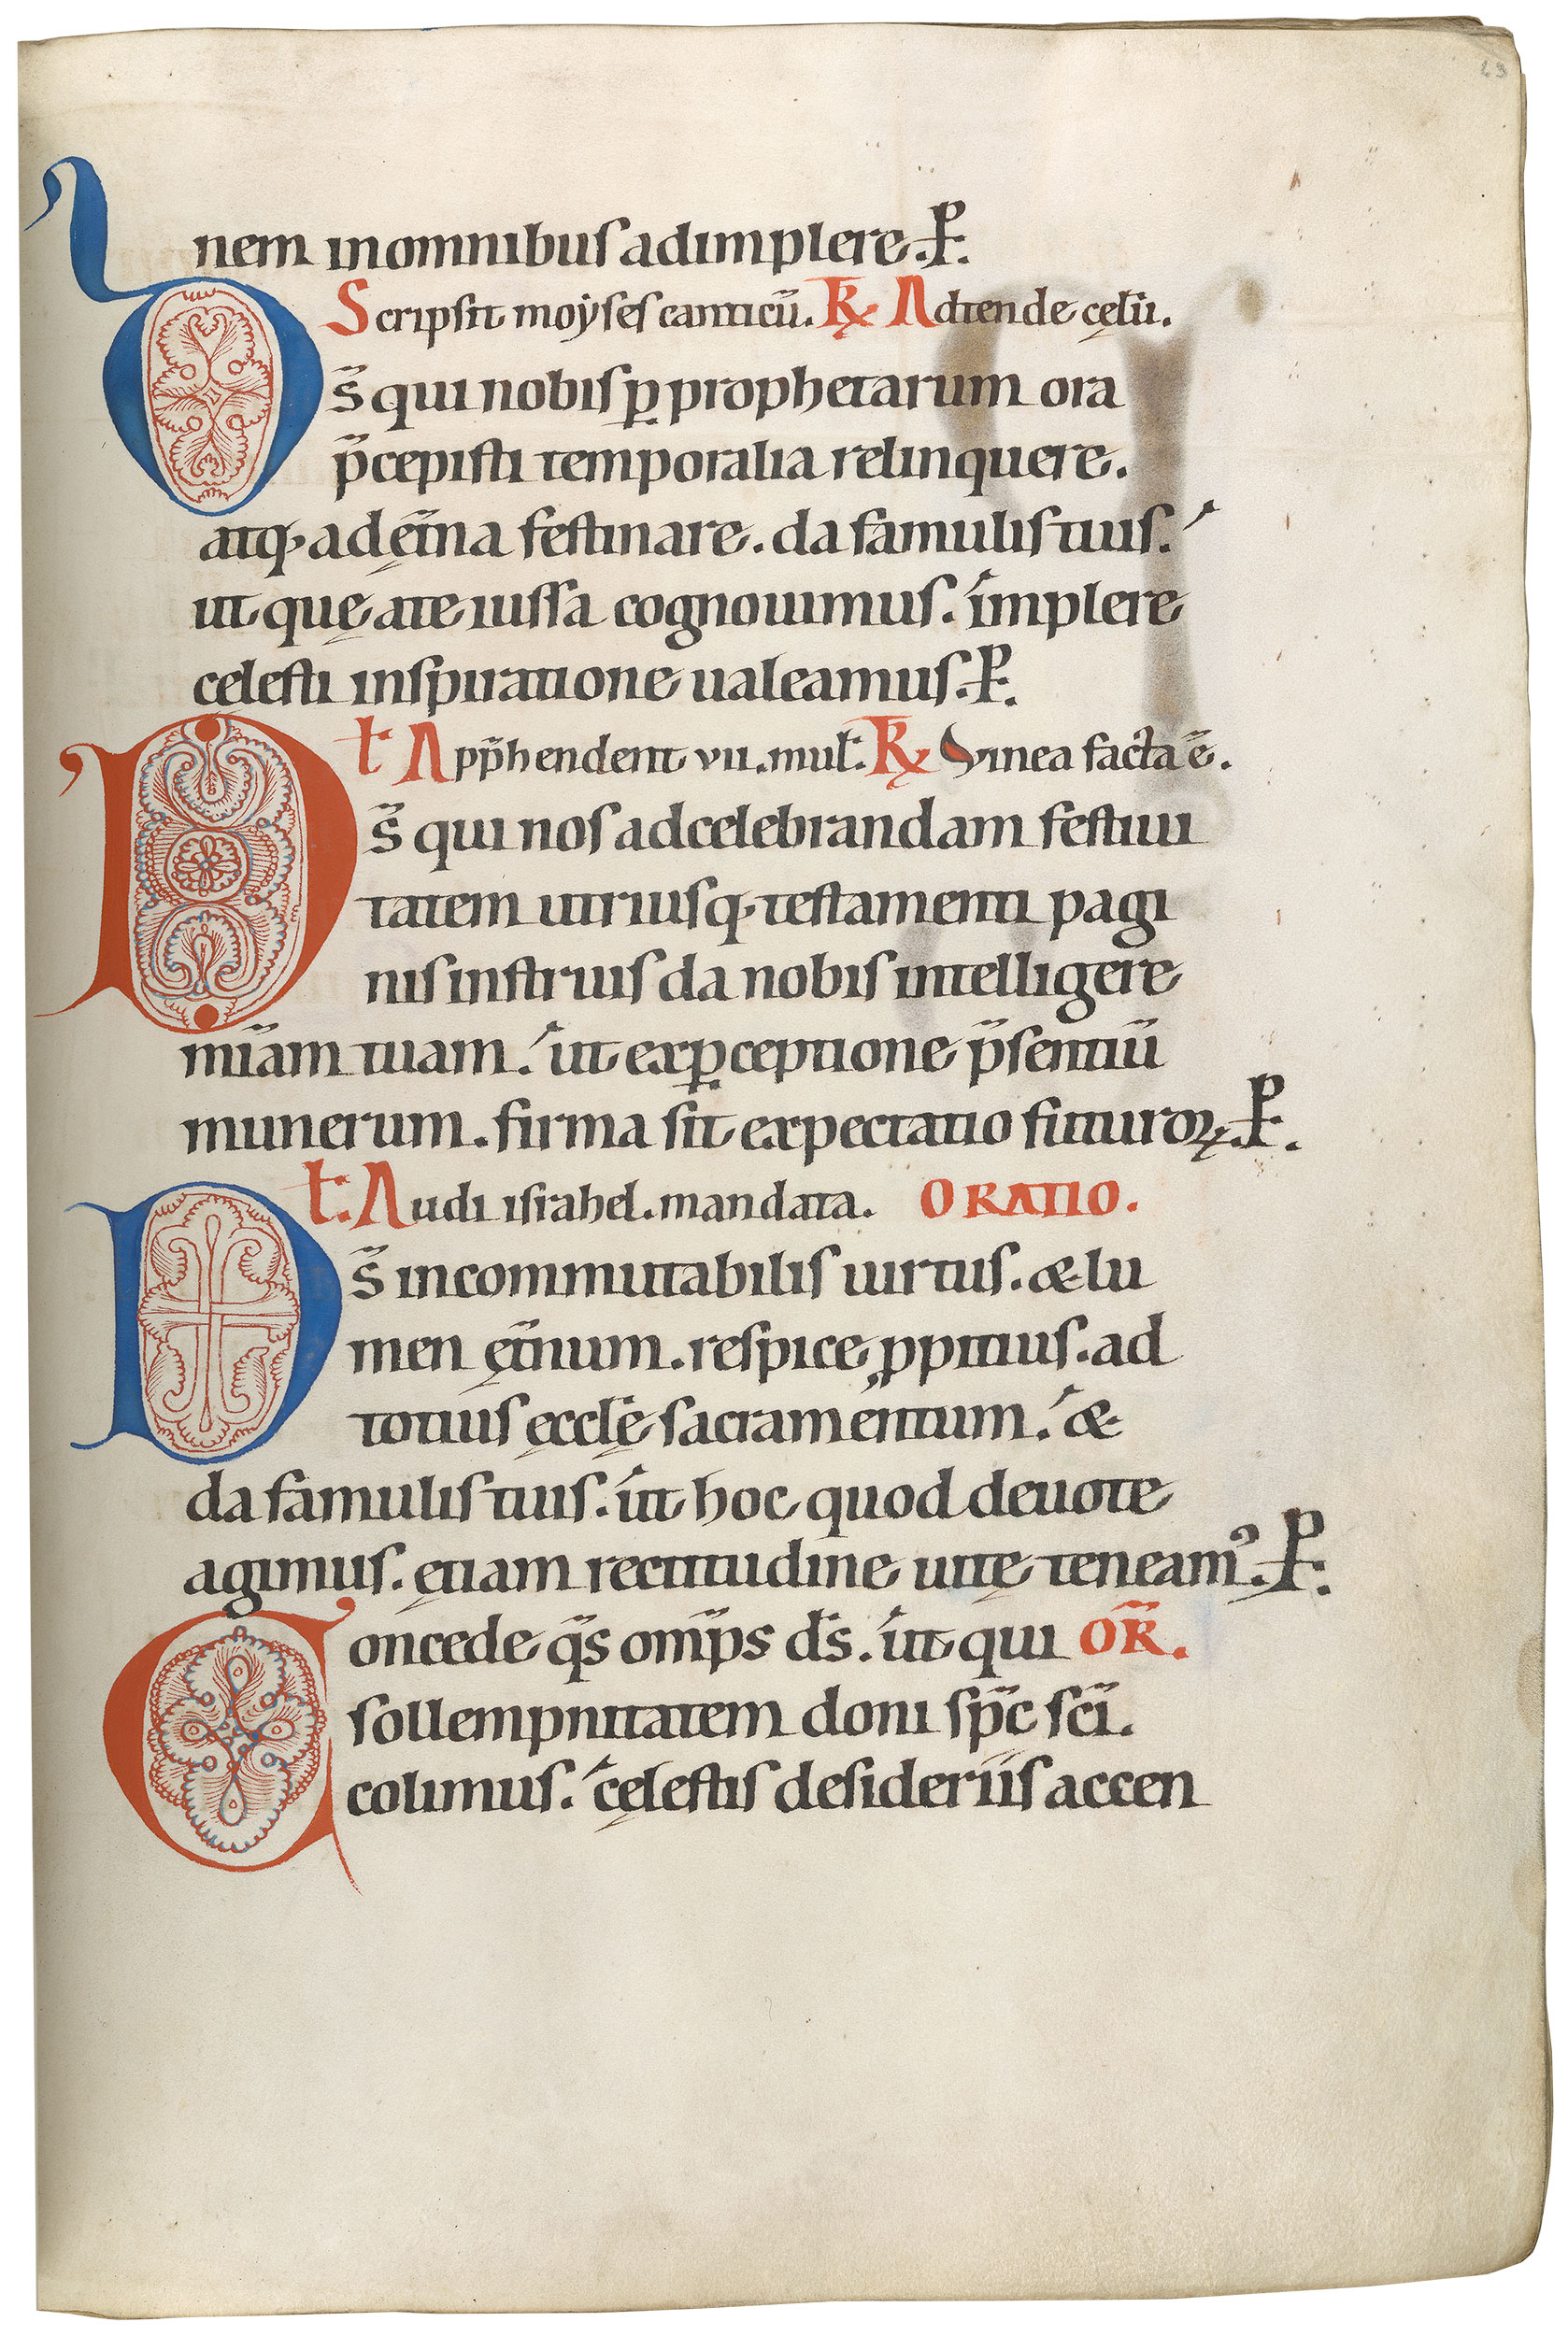 63
nem in omnibus adimplere. P.
Scripsit moẏses canticū. R̷ Adtende cęlū.
Ds̄ qui nobis ꝑ prophetarum ora
p̄cepisti temporalia relinquere.
atq; ad ęt̄na festinare. da famulis tuis.
ut quę a te iussa cognouimus. implere
celesti inspiratione ualeamus. P.
t App̄hendent vii. mul. R̷ Vinea facta ē.
Ds̄ qui nos ad celebrandam festiui
tatem utriusq; testamenti pagi
nis instruis da nobis intelligere
mīam tuam. ut ex ꝑceptione p̄sentiū
munerum. firma sit expectatio futuroꝝ. P.
t. Audi israhel. mandata. ORATIO.
Ds̄ incommutabilis uirtus. & lu
men ęt̄num. respice ꝓpitius. ad
totius ęccl̄ę sacramentum. &
da famulis tuis. ut hoc quod deuote
agimus. ętiam rectitudine uitę teneamꝰ. P.
Concede qs̄ omp̄s ds̄. ut qui OR̄.
sollempnitatem doni sp̄c sc̄i.
colimus. cęlestis desideriis accen